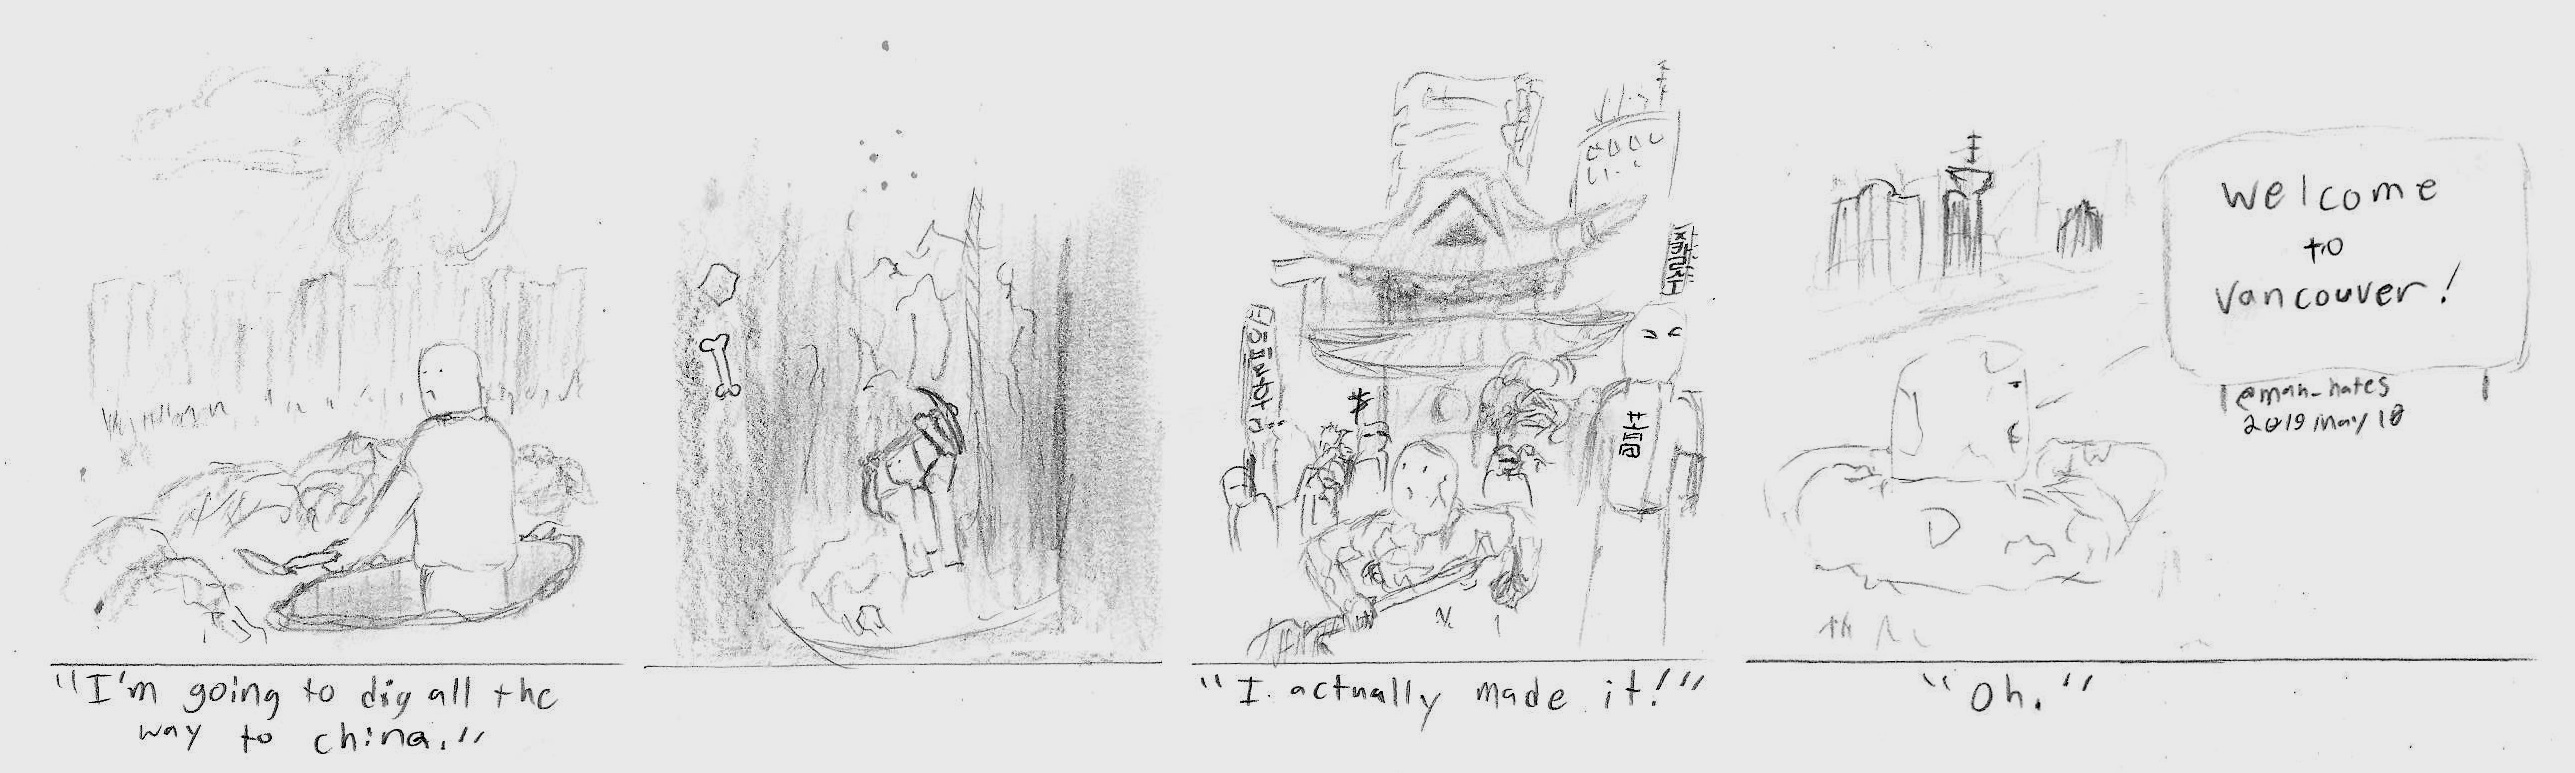 "I'm going to dig all the
way to china."
"I actually made it!"
Welcome
to
Vancouver!
@man_hates
2019 May 18
"Oh."